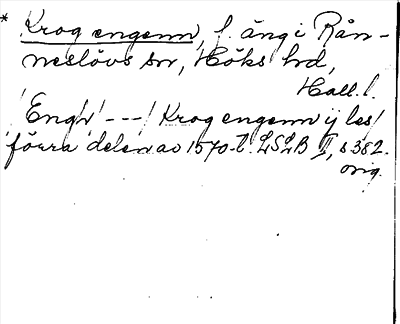 * Krogengenn, f. äng i Rån-
neslövs sn, Höks hd,
Hall. l.
/Eng/r/ - - -/ Krogengenn ij les/
förra delen av 1570-t. LSLB II, s 382.
orig.